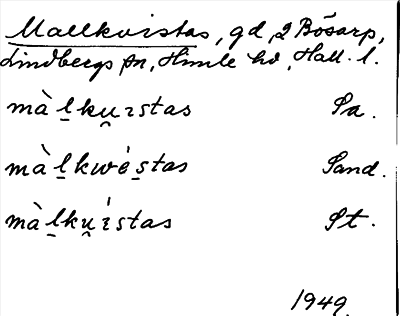 Mallkvistas, gd, 2 Bösarp,
Lindbergs sn, Himle hd, Hall. l.
màḻku̯ɪstas Sa.
màḻkwės̱tas Sand.
màḻku̯i̇́stas St.
1949.